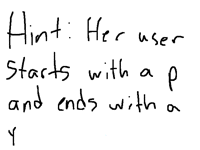 Hint: Her user
starts with a p
and ends with a
y